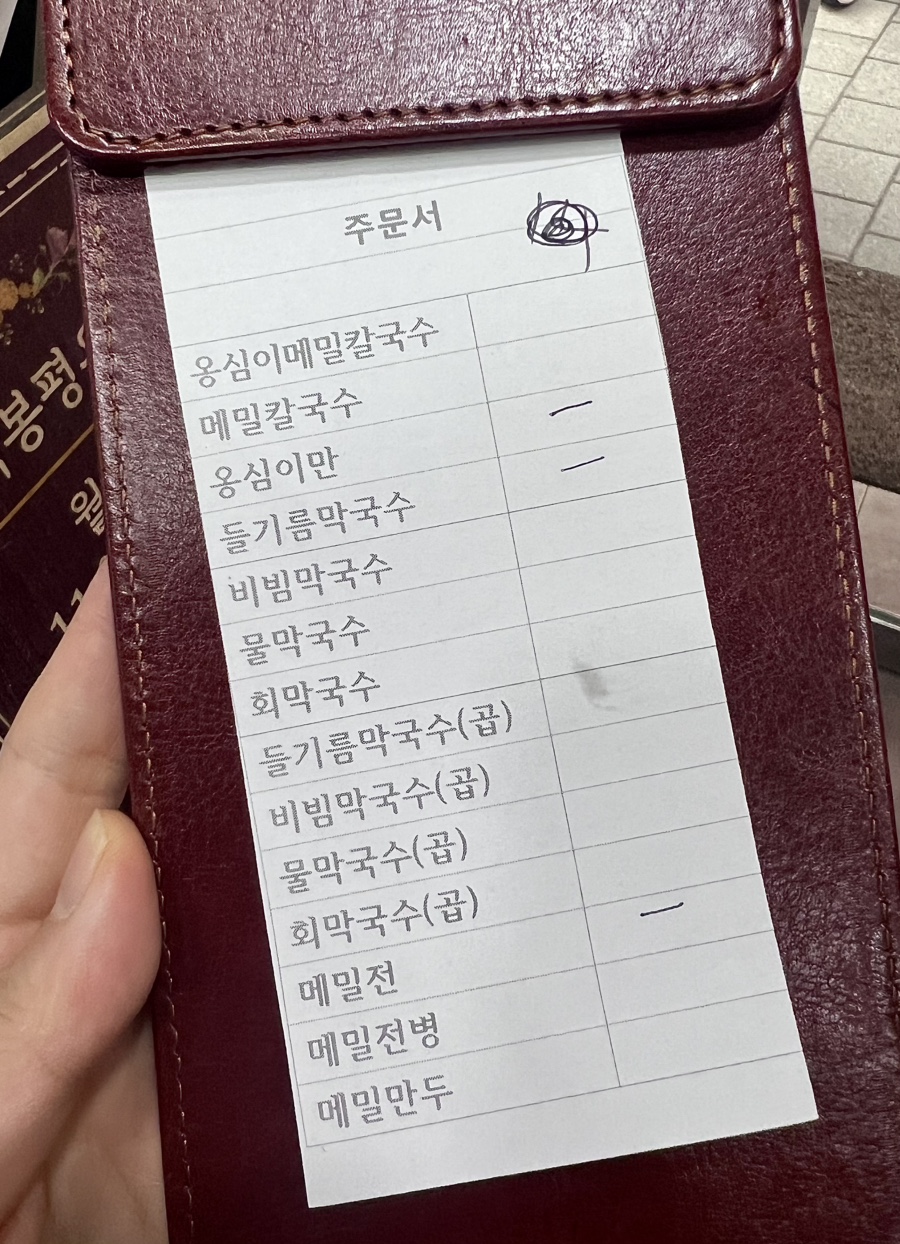 주문서
옹심이메밀칼국수
메밀칼국수
옹심이만
들기름막국수
비빔막국수
물막국수
회막국수
들기름막국수(곱)
비빔막국수(곱)
물막국수(곱)
회막국수(곱)
메밀전
메밀전병
메밀만두
봉평
월
11